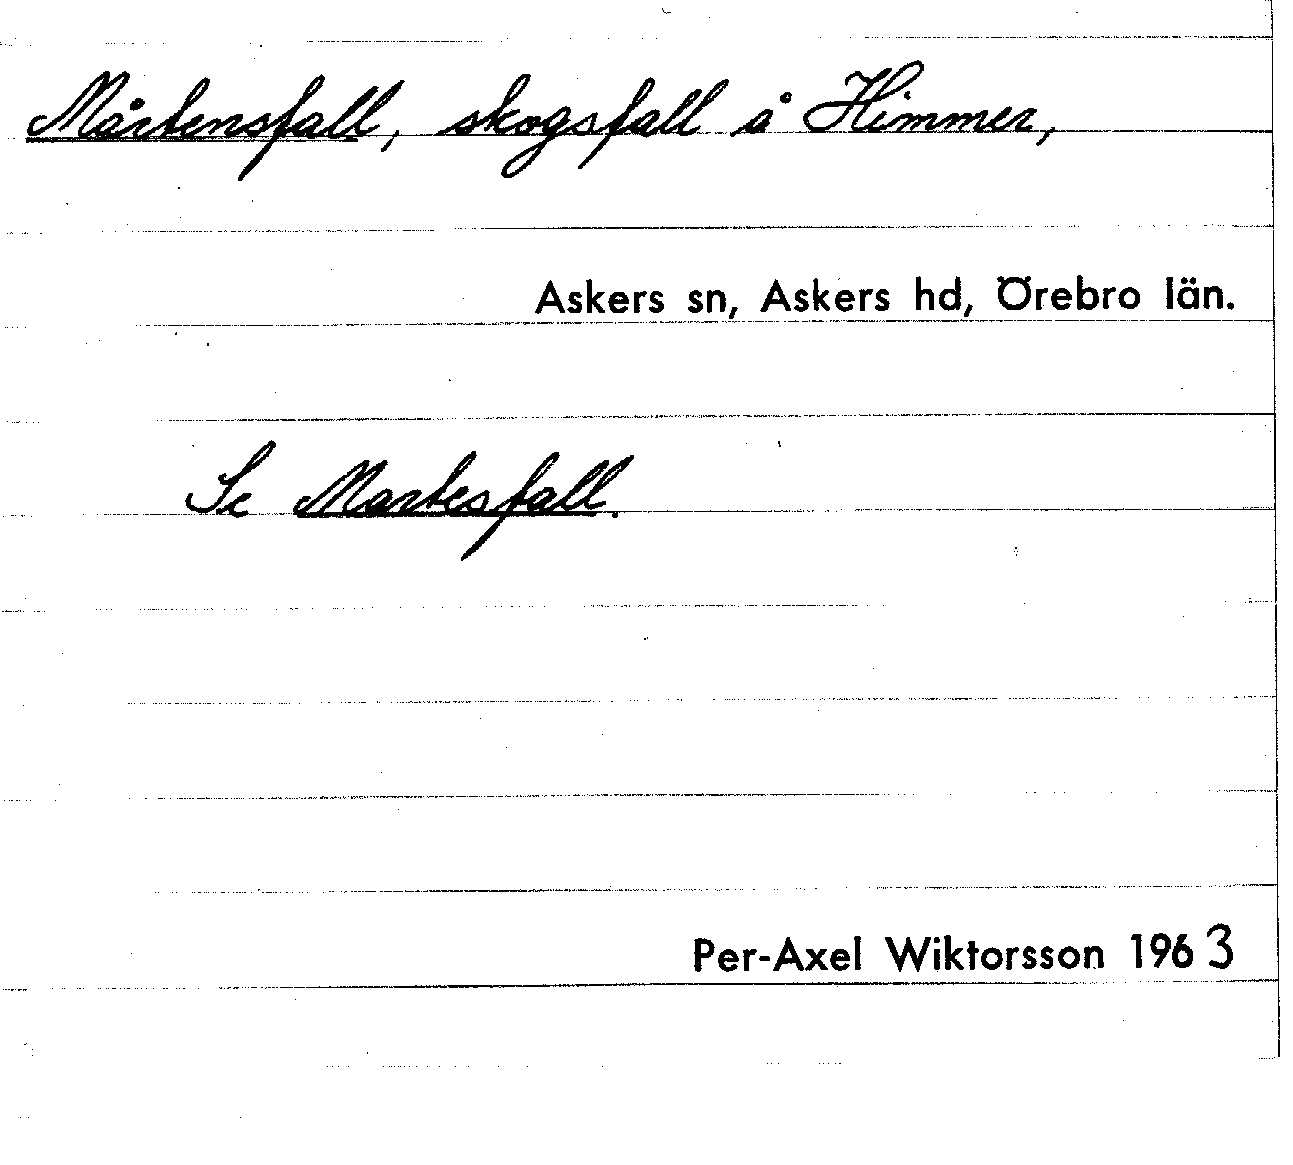 Mårtensfall, skogsfall å Himmer,
Askers sn, Askers hd, Örebro län.
Se Martesfall.
Per-Axel Wiktorsson 1963